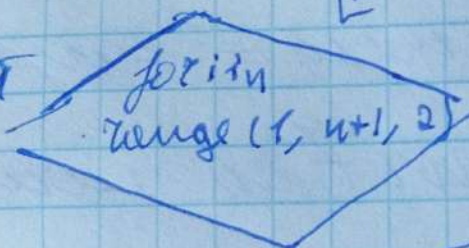 for i in
range (1, n+1, 2)